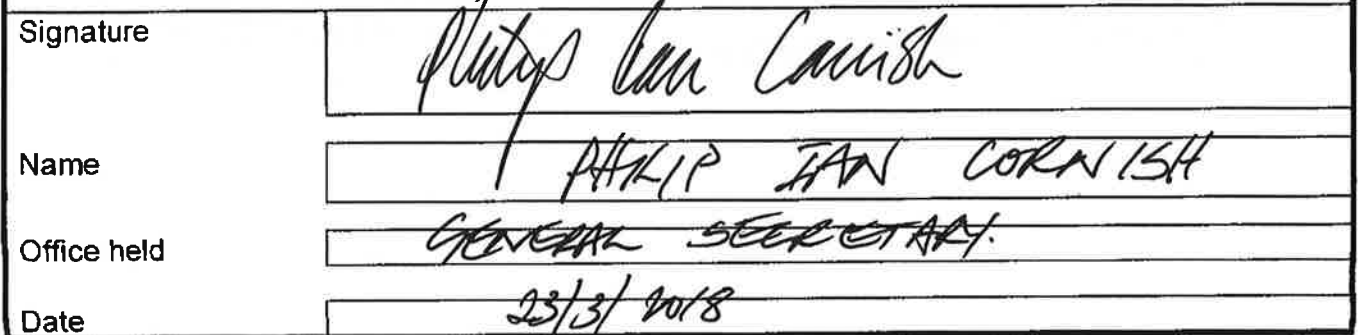 Signature Philip Ian Cornish
Name PHILIP IAN CORNISH
Office held GENERAL SECRETARY.
Date 23/3/2018